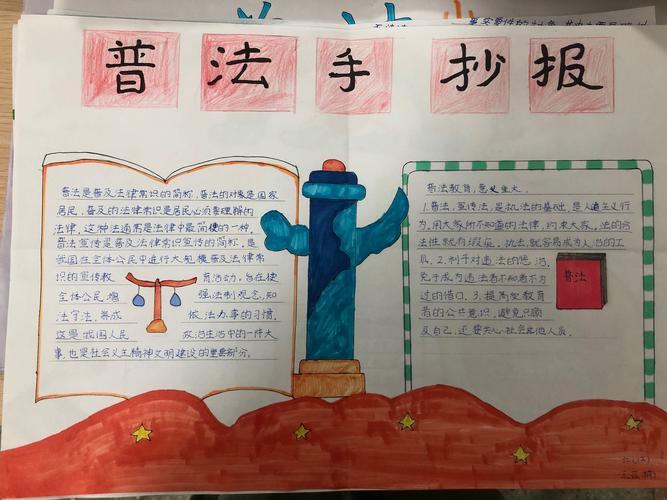 普法手抄报
普法是普及法律常识的简称,普法的对象是国家
居民,普及的法律常识是居民必须要理解的
法律,这种法通常是法律中最简梗的一种。
普法宣传是普及法律常识宣传的简称,是
我国在全体公民中进行大规模普及法律常
识的宣传教 育活动,旨在使
全体公民增 强法制观念,知
法守法,养成 依法办事的习惯,
这是我国人民 政治生活中的一件大
事,也是社会主义精神文明建设的重要部分。
普法教育,意义重大。
1.普法,宣传法,是执法的基础,是人道主义行
为。用大家所不知道的法律,约束大家。法的合
法性就有瑕疵。执法,就容易成为人治的工
具。2.利于对违法的惩治。
免于成为违法者不知者不为
过的借口。3.提高受教育
者的公共意识,避免只顾
及自己,还要关心社会其他人员。
普法